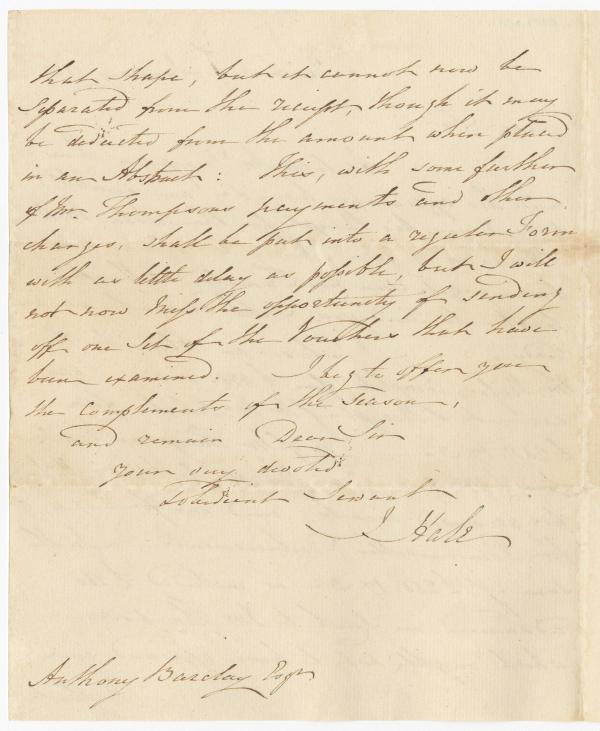 that shape, but it cannot now be
separated from the receipt, though it may
be deducted from the amount when placed
in an Abstract: This, with some further
of Mr. Thompsons payments and other
charges, shall be put into a regular Form
with as little delay as possible, but I will
not now miss the opportunity of sending
off one Set of the Vouchers that have
been examined. I beg to offer you
the complements of the season,
and remain Dear Sir
your very devoted
Obedient Servant
J Hale
Anthony Barclay Esqr